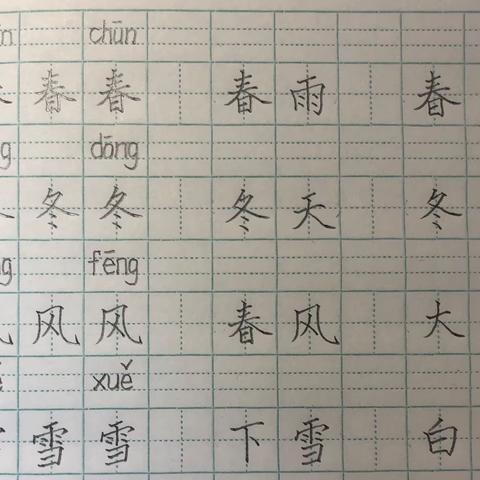 chūn
春 春 春 雨 春
dōng
冬 冬 冬 天 冬
fēng
风 风 春 风 大
xuě
雪 雪 下 雪 白